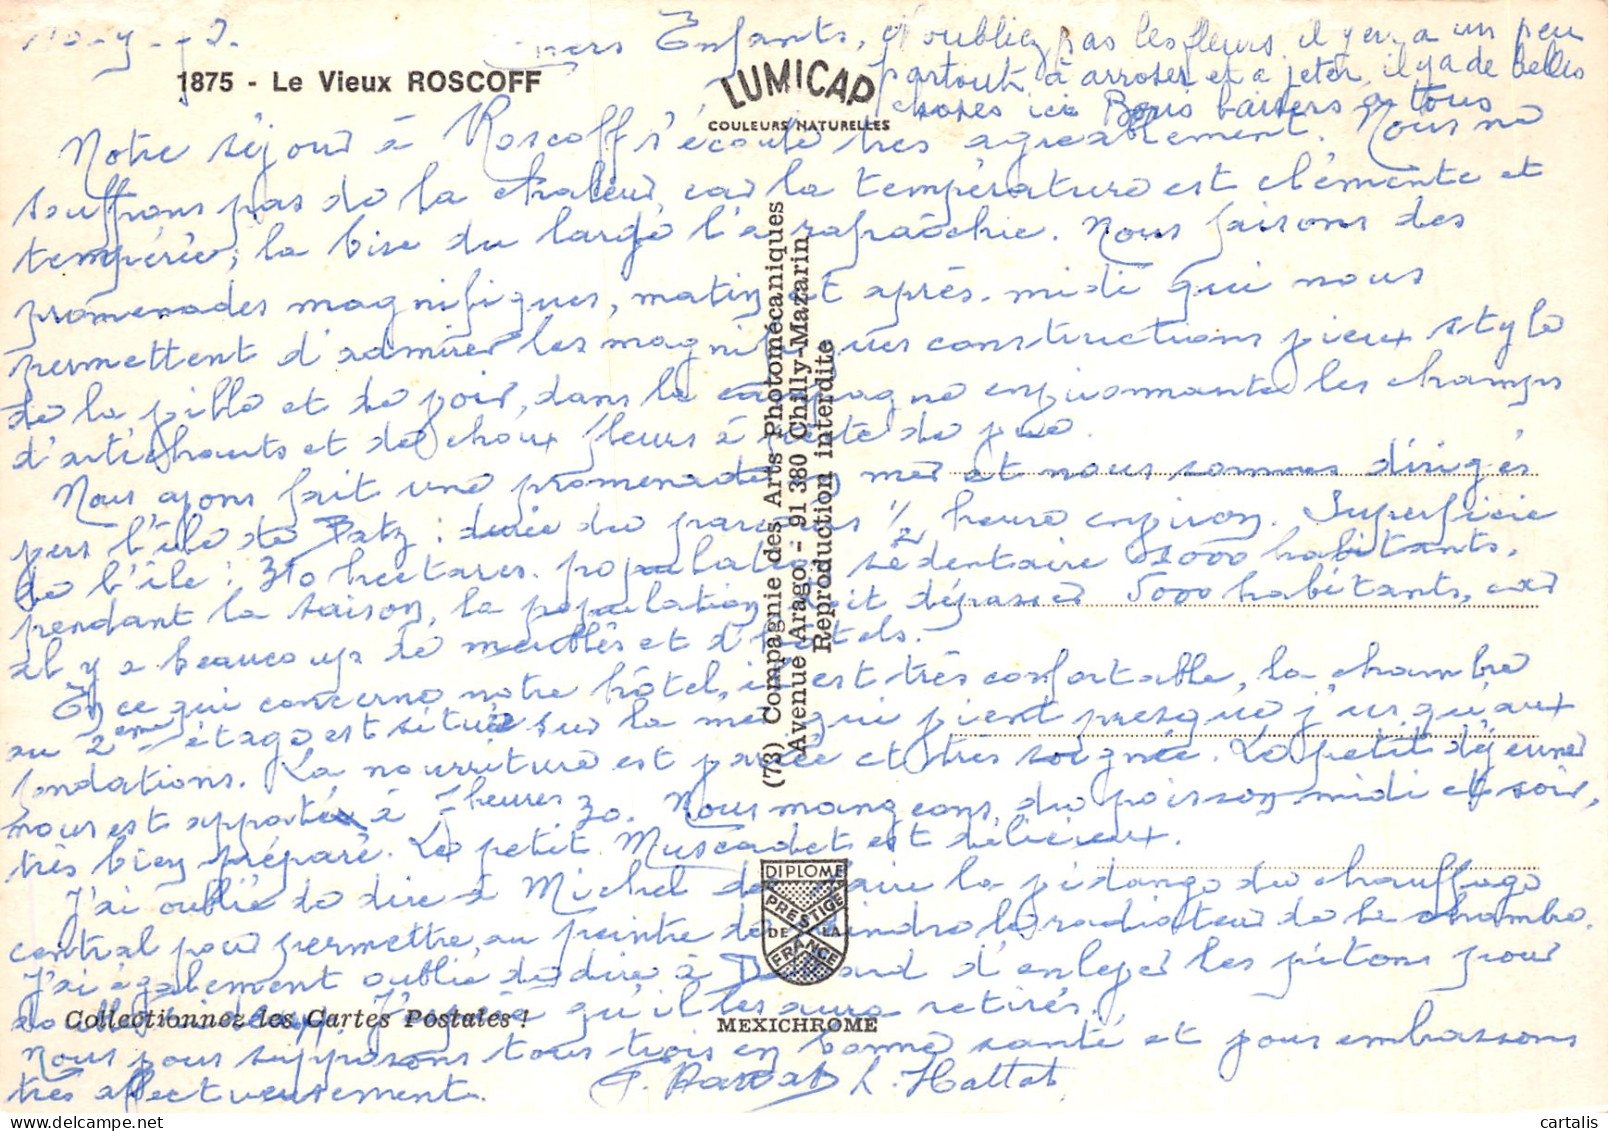 Chers Enfants, n'oubliez pas les fleurs, il y en a un peu
partout à arroser et à jeter, il y a de belles
choses ici Bons baisers à tous
1875 - Le Vieux ROSCOFF
LUMICAP
COULEURS NATURELLES
Notre séjour à Roscoff s'écoule très agréablement. Nous ne
souffrons pas de la chaleur, car la température est clémente et
tempérée; la bise du large l'a rafraîchie. Nous faisons des
promenades magnifiques, matin et après-midi qui nous
permettent d'admirer les magnifiques constructions vieux style
de la ville et de voir, dans la campagne environnante les champs
d'artichauts et de choux fleurs à perte de vue.
Nous avons fait une promenade en mer et nous sommes dirigés
vers l'île de Batz : durée du parcours 1/2 heure environ. Superficie
de l'île : 310 hectares. population sédentaire 1000 habitants.
pendant la saison, la population doit dépasser 5000 habitants, car
il y a beaucoup de meublés et d'hôtels.
En ce qui concerne notre hôtel, il est très confortable, la chambre
au 2eme étage est située sur la mer qui vient presque jusqu'aux
fondations. La nourriture est variée et très soignée. Le petit déjeuner
nous est apporté à 7 heures 30. Nous mangeons, du poisson midi et soir,
très bien préparé. Le petit Muscadet est délicieux.
J'ai oublié de dire à Michel de faire la vidange du chauffage
central pour permettre, au peintre de peindre le radiateur de la chambre.
J'ai également oublié de dire à d'enlever les pitons pour
J'espère qu'il les aura retirés.
Collectionnez les Cartes Postales !
MEXICHROME
Nous vous supposons tous trois en bonne santé et vous embrassons
très affectueusement.
(73) Compagnie des Arts Photomécaniques
Avenue Arago - 91 380 Chilly-Mazarin
Reproduction interdite
DIPLOME
PRESTIGE
DE LA
FRANCE